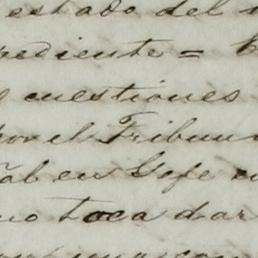 estado del
pediente =
cuestiones
por el Tribun
ñal en Gefe
no toca dar